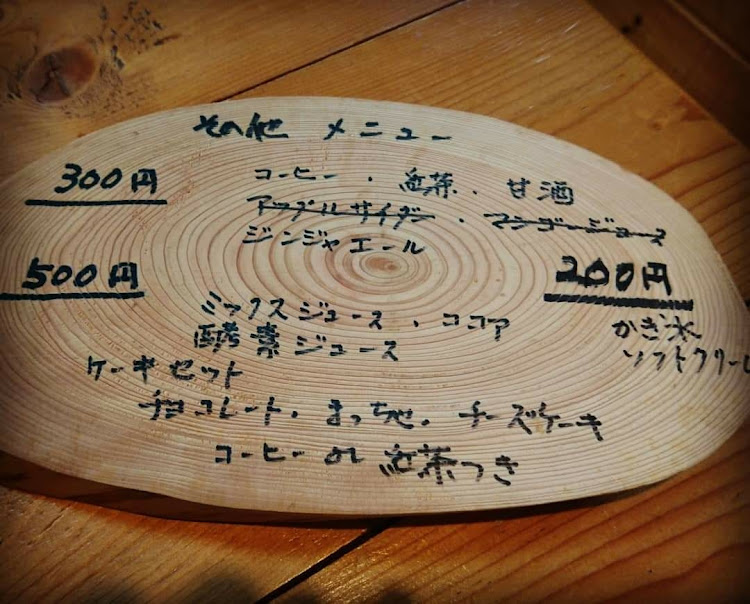 その他 メニュー
300円
コーヒー . 紅茶 . 甘酒
アップルサイダー . マンゴージュース
ジンジャエール
500円
ミックスジュース . ココア
酵素ジュース
ケーキセット
チョコレート . まっちゃ . チーズケーキ
コーヒー or 紅茶つき
200円
かき氷
ソフトクリーム